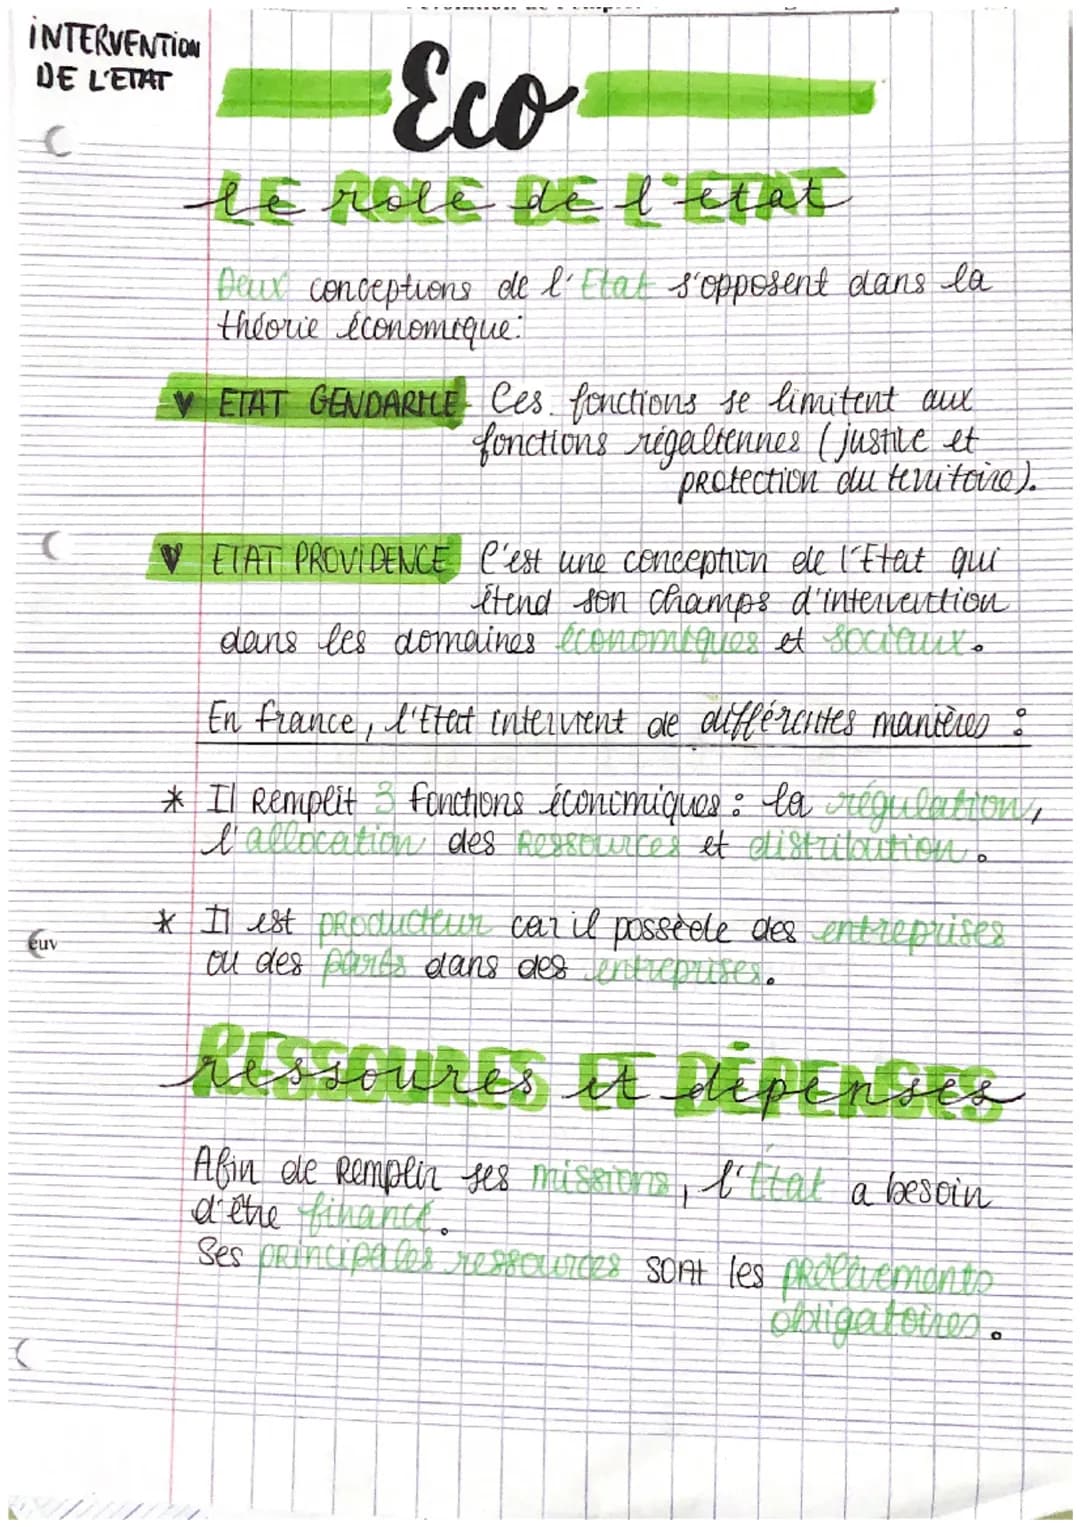 INTERVENTION
DE L'ETAT
Eco
LE ROLE DE L'ETAT
Deux conceptions de l'Etat s'opposent dans la
théorie économique:
ETAT GENDARME Ces fonctions se limitent aux
fonctions régaliennes (justice et
protection du territoire).
ETAT PROVIDENCE C'est une conception de l'Etat qui
étend son champs d'intervention
dans les domaines économiques et sociaux.
En france, l'Etat intervient de différentes manières :
* Il Remplit 3 fonctions économiques : la régulation,
l'allocation des Ressources et distribution.
* Il est producteur car il possède des entreprises
ou des parts dans des entreprises.
euv
RESSOURES ET DÉPENSES
Afin de Remplir ses missions, l'État a besoin
d'être financé.
Ses principales ressources sont les prélèvements
obligatoires.